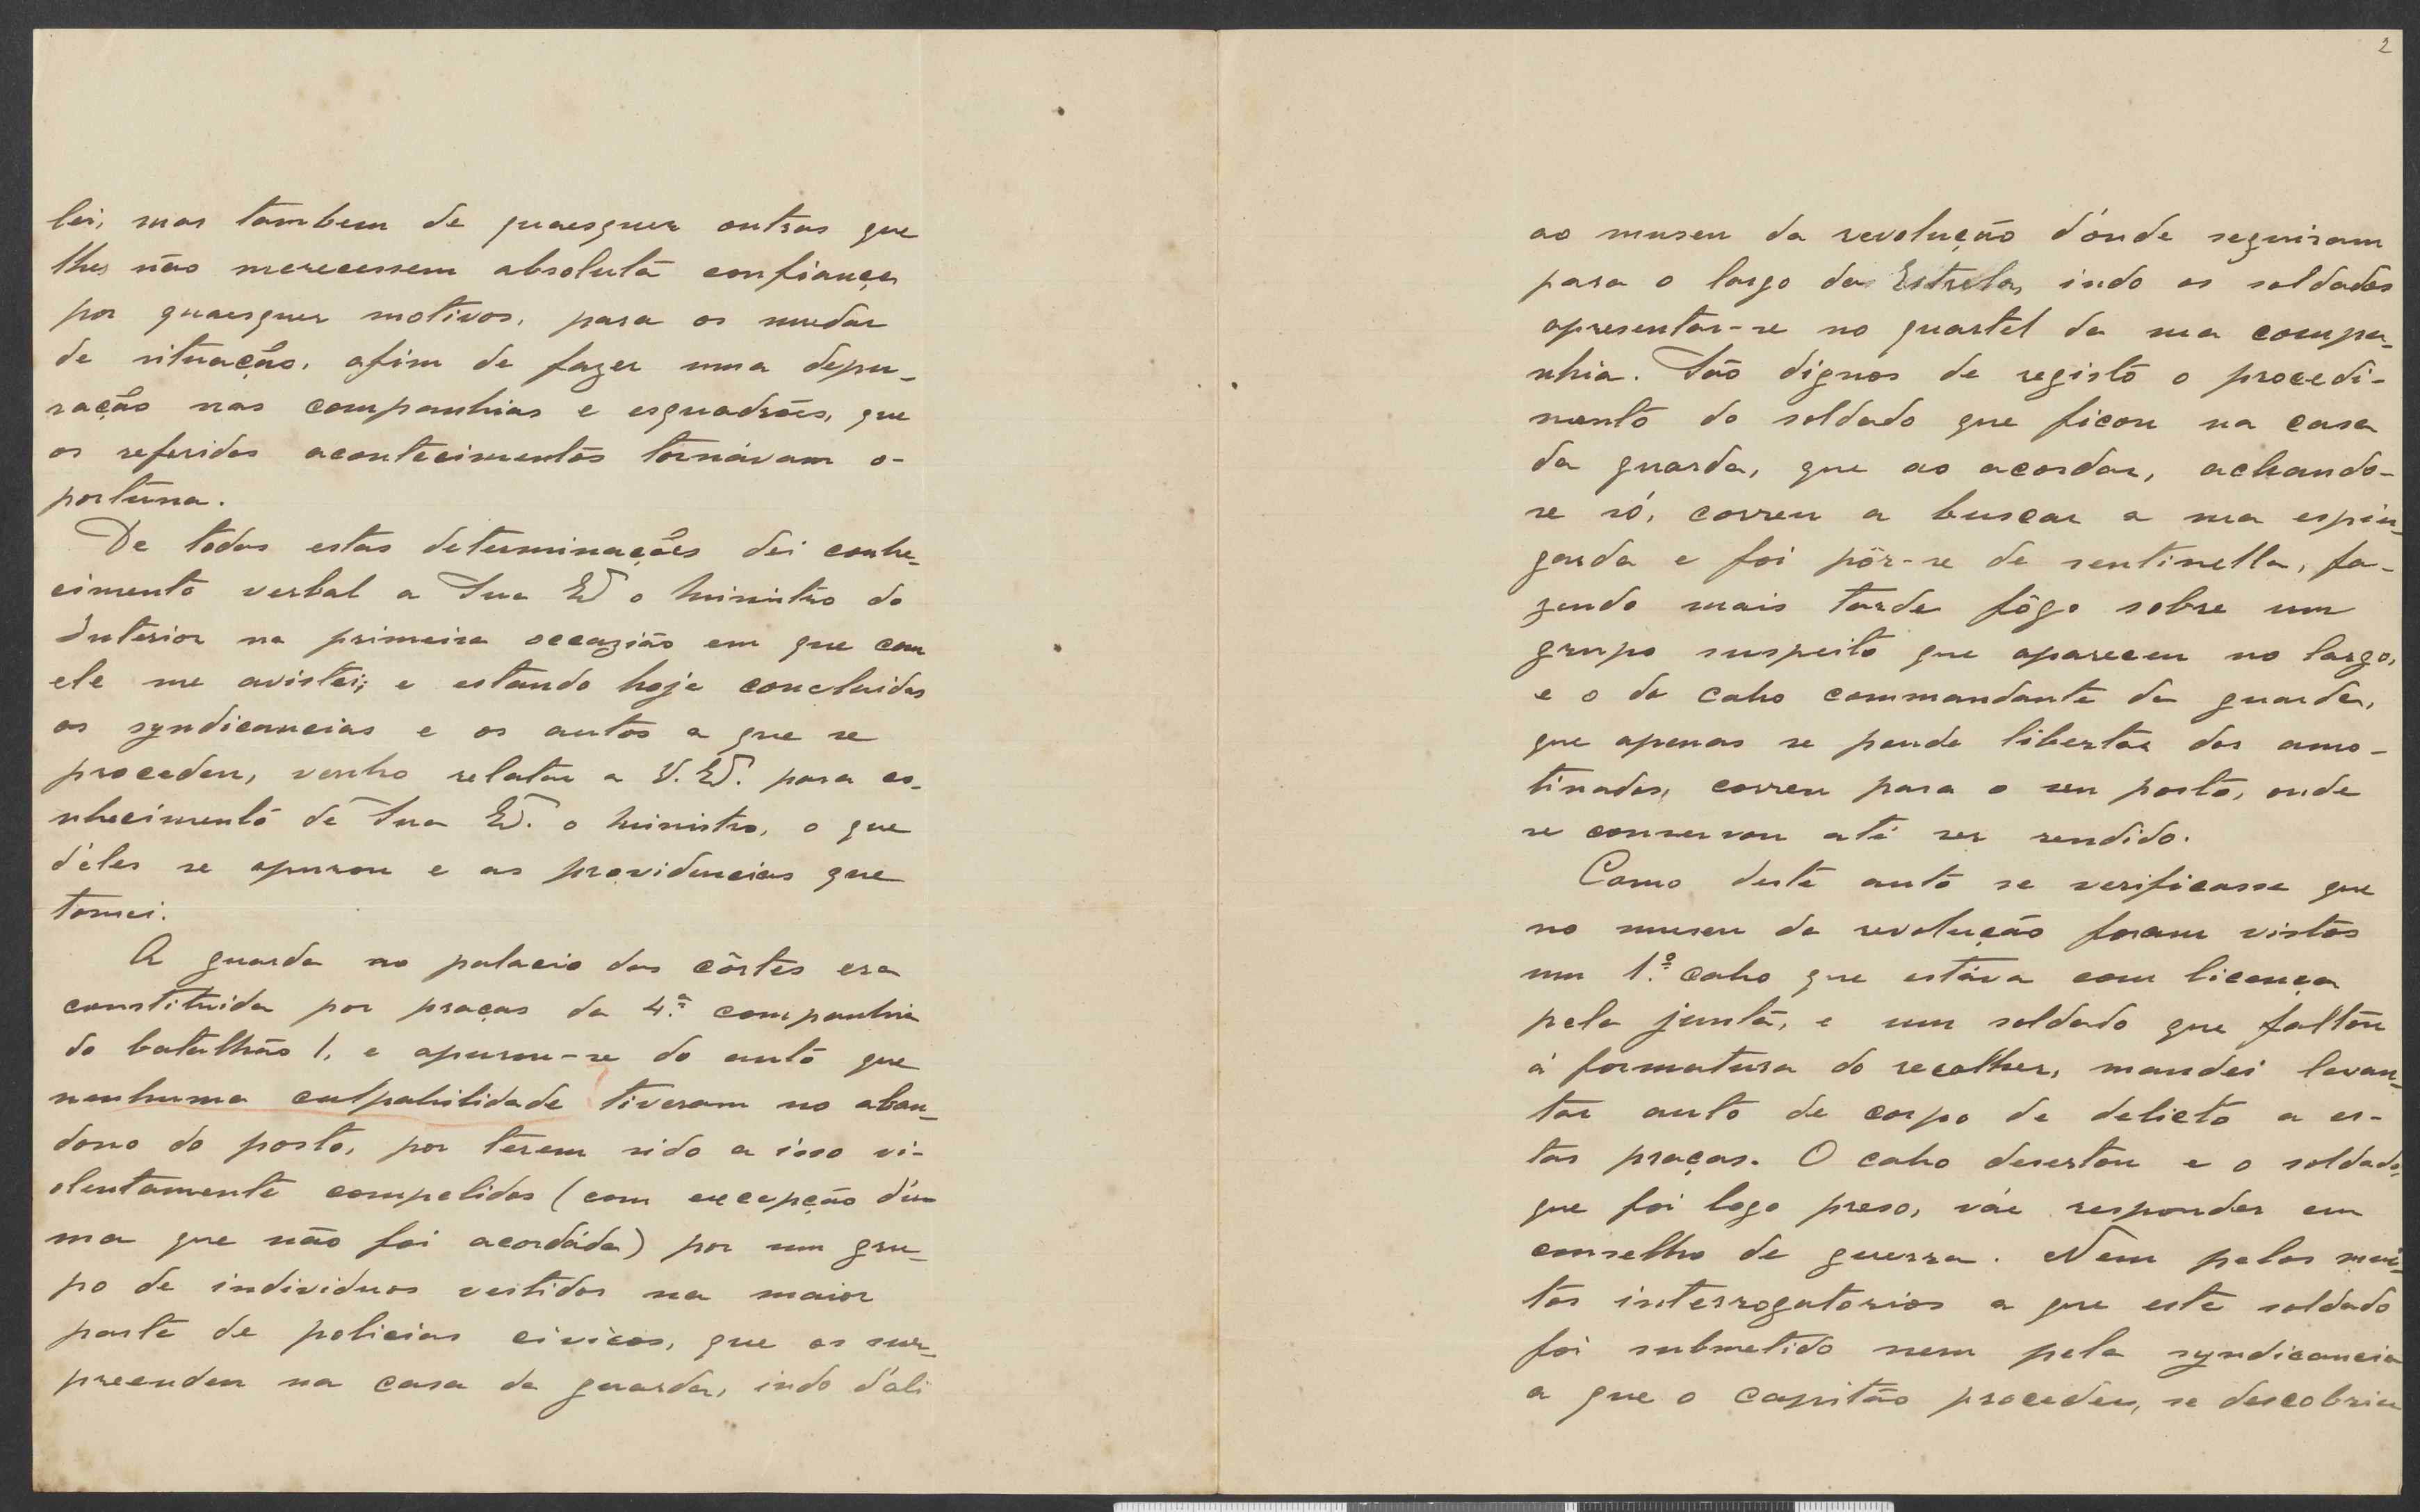 lei, mas tambem de quaesquer outras que
lhes não merecessem absoluta confiança
por quaesquer motivos, para os mudar
de situação, afim de fazer uma depu-
ração nas companhias e esquadrões, que
os referidos acontecimentos tornávam o-
portuna.
De todas estas determinações dei conhe-
cimento verbal a Sua Ex.ª o Ministro do
Interior na primeira occazião em que com
ele me avistei; e estando hoje concluidas
as syndicancias e os autos a que se
procedeu, venho relatar a V. Ex.ª para co-
nhecimento de Sua Ex.ª o Ministro, o que
d'eles se apurou e as providencias que
tomei.
A guarda no palacio das côrtes era
constituida por praças da 4.ª companhia
do batalhão 1, e apurou-se do auto que
nenhuma culpabilidade tiveram no aban-
dono do posto, por terem sido a isso vi-
olentamente compelidas (com excepção d'u-
ma que não foi acordáda) por um gru-
po de individuos vestidos na maior
parte de policias civicos, que os sur-
preendeu na casa da guarda, indo d'ali
2
ao museu da revolução d'onde seguiram
para o largo da Estrela, indo os soldados
apresentar-se no quartel da sua compa-
nhia. São dignos de registo o procedi-
mento do soldado que ficou na casa
da guarda, que ao acordar, achando-
se só, correu a buscar a sua espin-
garda e foi pôr-se de sentinella, fa-
zendo mais tarde fôgo sobre um
grupo suspeito que apareceu no largo,
e o do cabo commandante da guarda,
que apenas se poude libertar dos amo-
tinados, correu para o seu posto, onde
se conservou até ser rendido.
Como deste auto se verificasse que
no museu da revolução foram vistos
um 1.º cabo que estáva com licença
pela junta, e um soldado que faltou
á formatura do recolher, mandei levan-
tar auto de corpo de delicto a es-
tas praças. O cabo desertou e o soldado,
que foi logo preso, váe responder em
conselho de guerra. Nem pelos mui-
tos interrogatorios a que este soldado
foi submetido nem pela syndicancia
a que o capitão procedeu, se descobriu